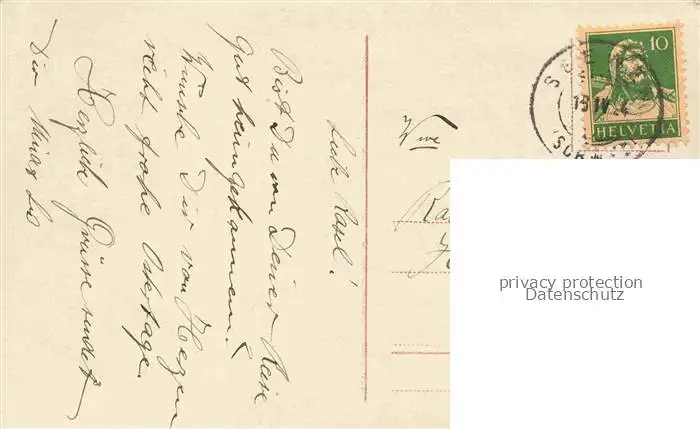 Liebe Rosel!
Bist Du von Deiner Reise
gut heimgekommen?
Wünsche Dir von Herzen
recht frohe Ostertage.
Herzliche Grüsse sendet
Dir
Wwe
10
HELVETIA
15 IV
(SCHW
privacy protection
Datenschutz